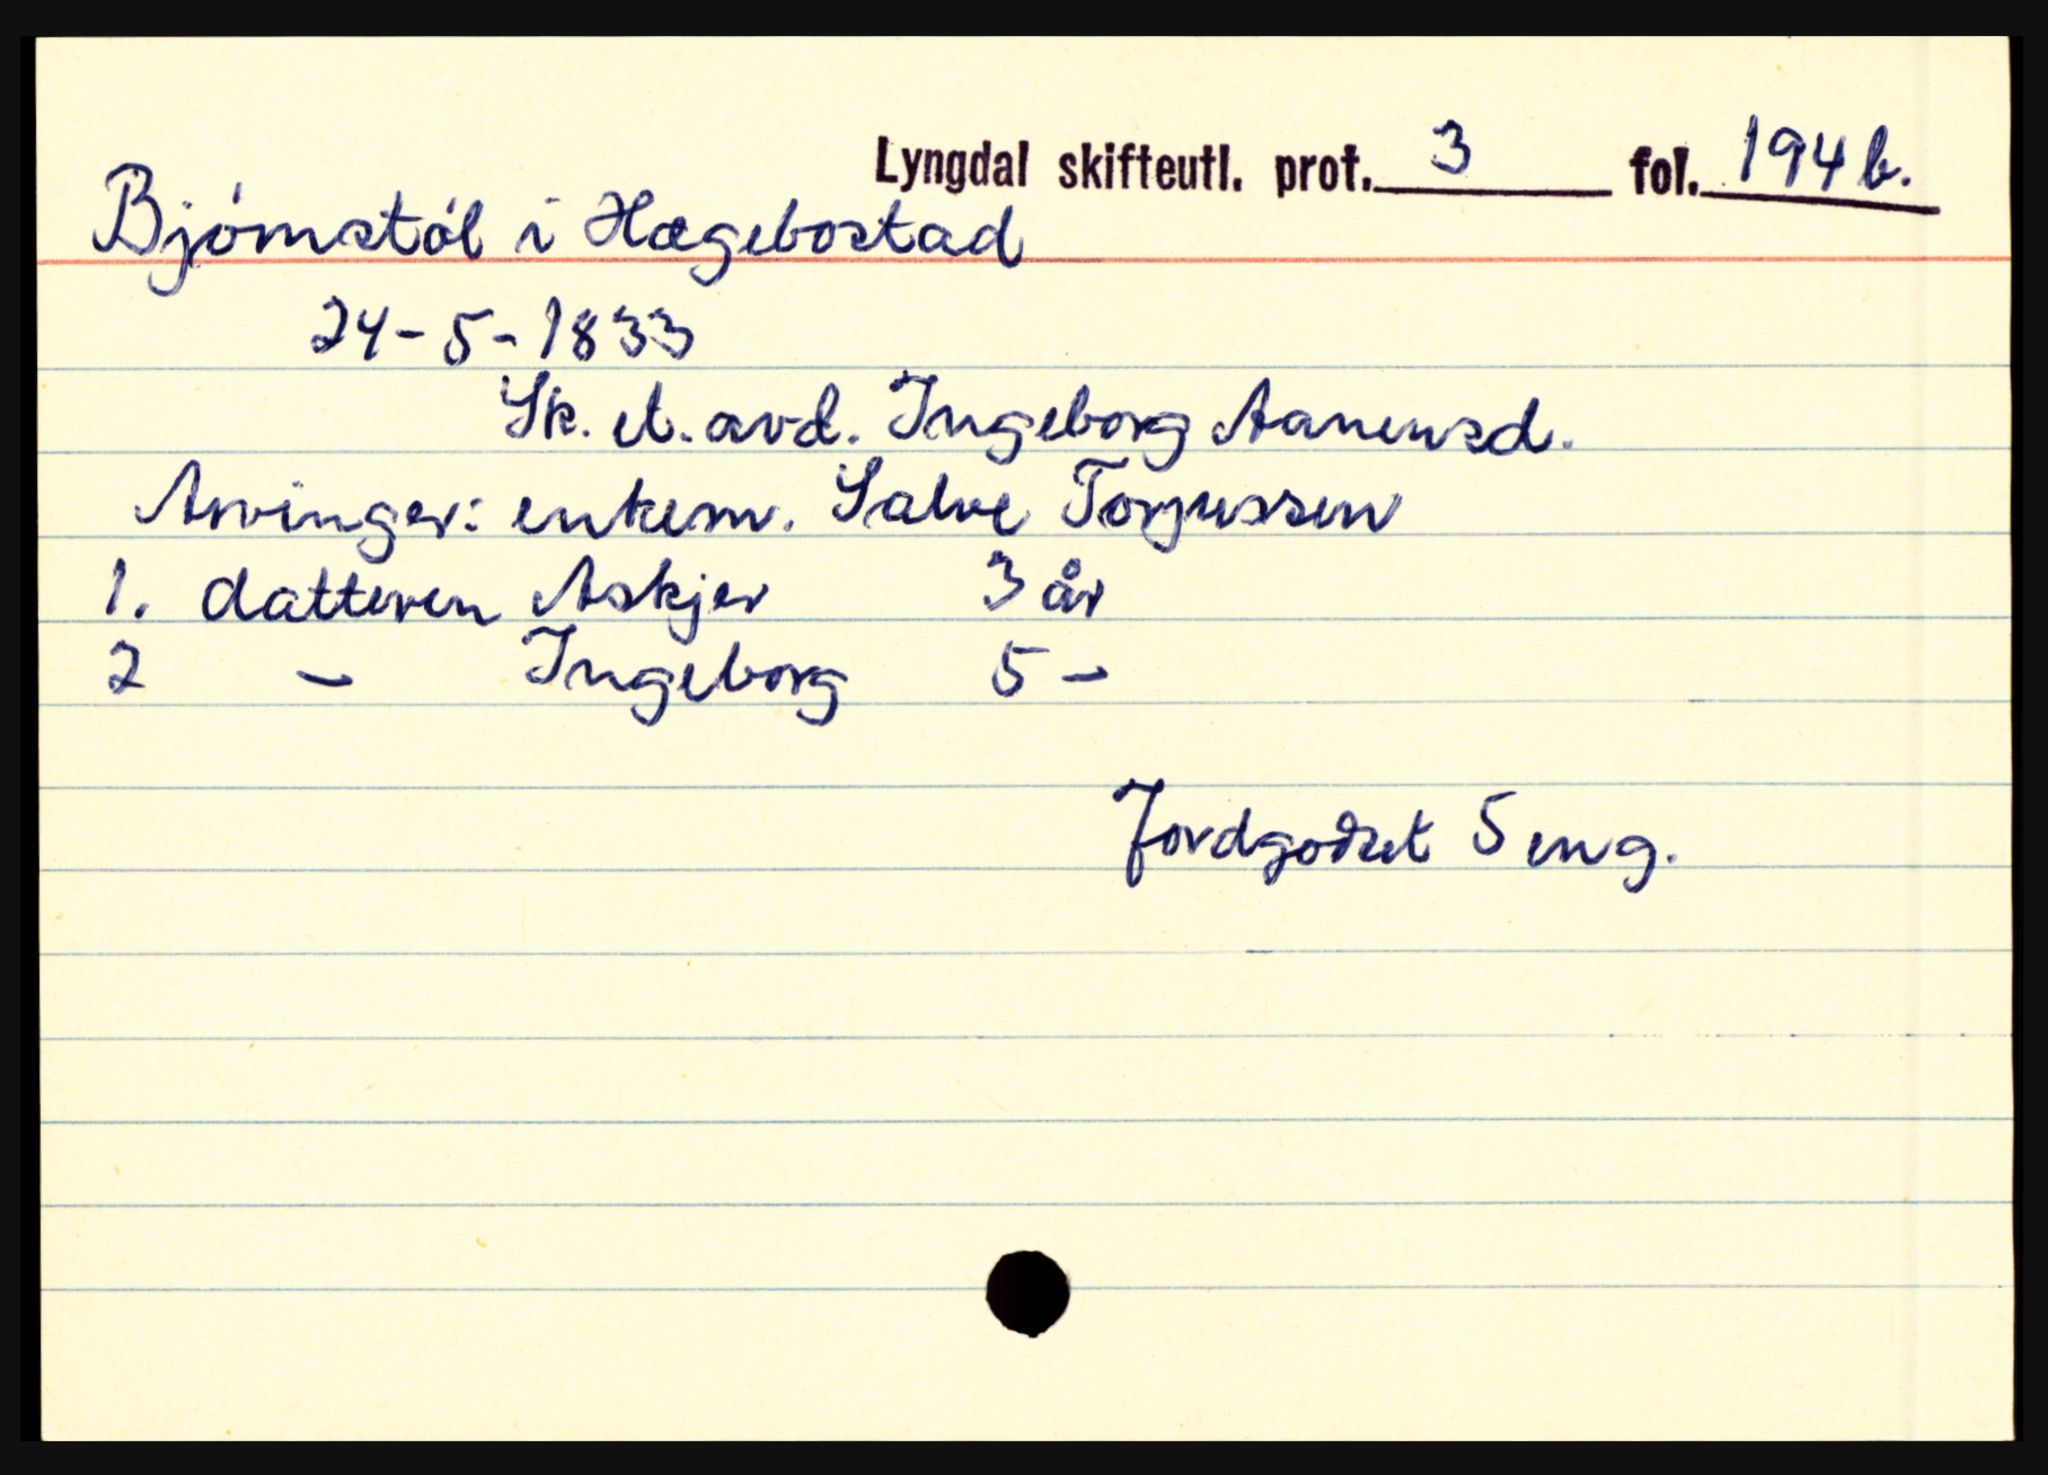 Lyngdal skifteutl. prot. 3 fol. 194 b.
Bjórnstól i Hægebostad
24-5-1833
Sk. et. avd. Ingeborg Aanensd.
Arvinger: enkem. Salve Torjussen
1. datteren Askjer 3 år
2 - Ingeborg 5 -
Jordgodset 5 eng.